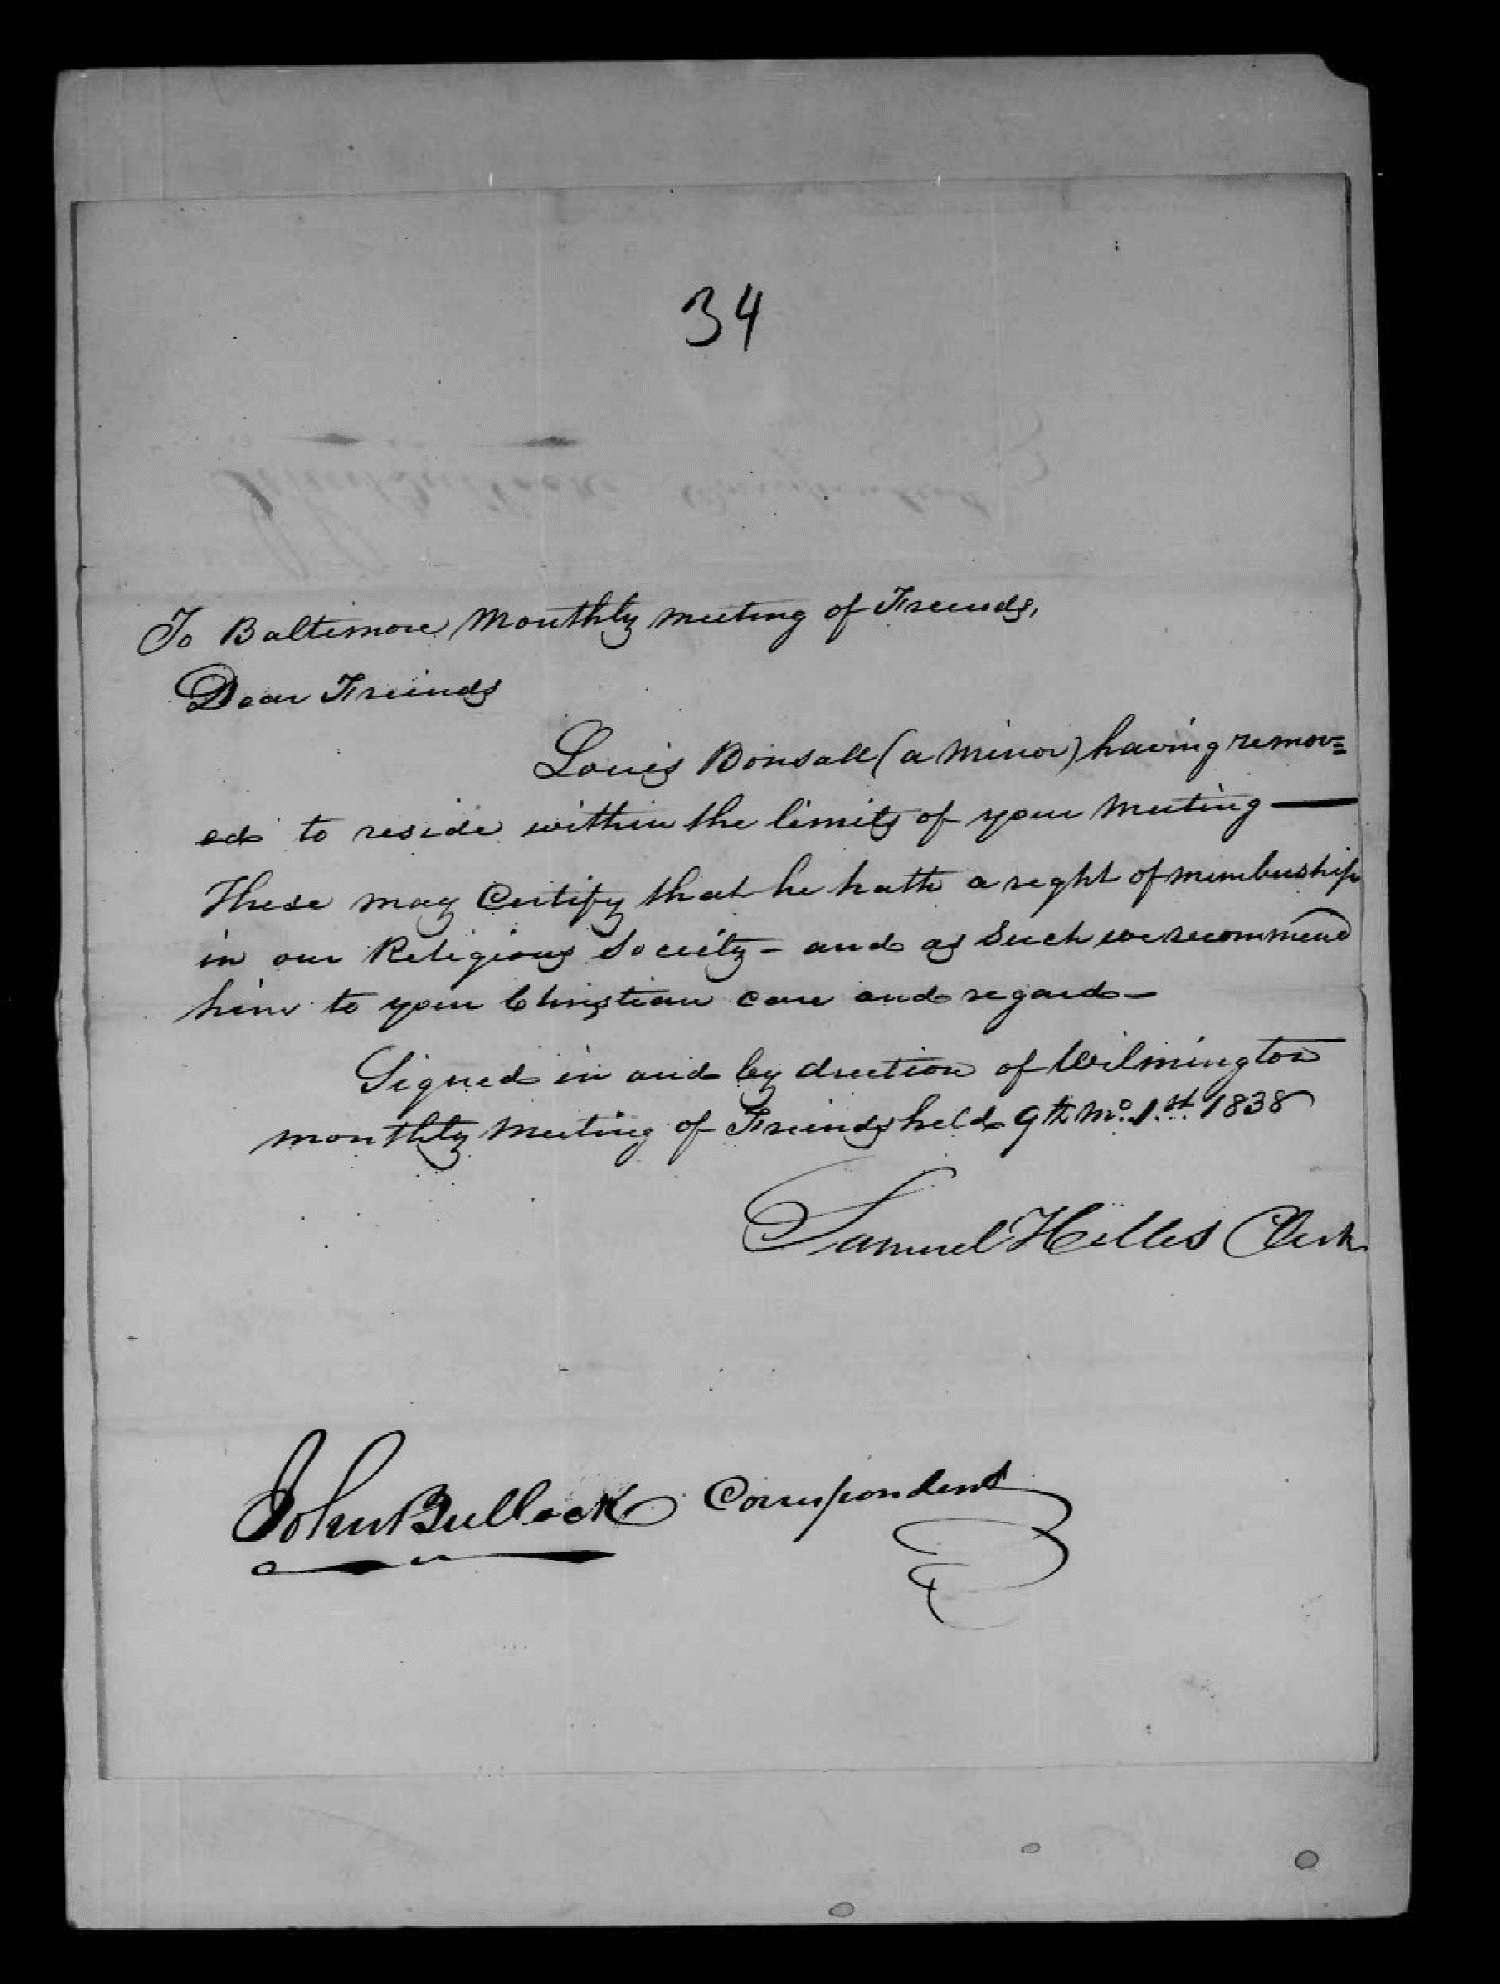 34
To Baltimore Monthly meeting of Freinds,
Dear Freinds
Louis Bonsall (a minor) having remov=
ed to reside within the limits of your Meeting —
These may Certify that he hath a right of membership
in our Religious Society - and as Such we recommend
him to your Christian care and regard -
Signed in and by direction of Wilmington
monthly Meeting of Freinds held 9th Mo. 1st. 1838
Samuel Hilles Clerk
John Bullock Correspondent